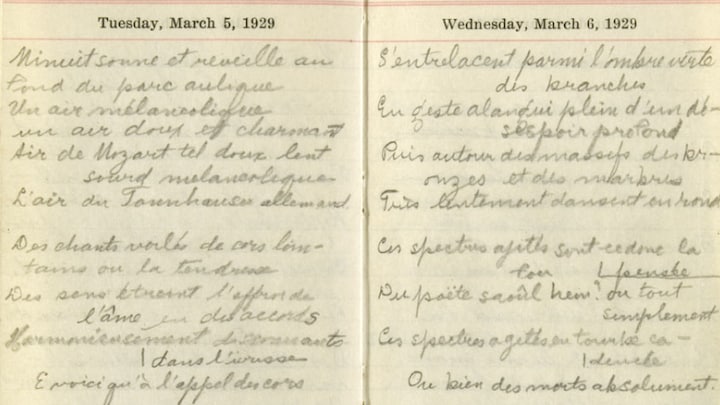 Tuesday, March 5, 1929
Minuit sonne et reveille au
fond du parc aulique
Un air mélancolique
un air doux et charmant
Air de Mozart tel doux lent
sourd melancolique
L'air du Tannhauser allemand
Des chants voilés de cors loin-
tains ou la tendresse
Des sens étreint l'effroi de
l'âme en des accords
Harmonieusement dissonants
dans l'ivresse
E voici qu'à l'appel des cors
Wednesday, March 6, 1929
S'entrelacent parmi l'ombre verte
des branches
En geste alangui plein d'un dé-
sespoir profond
Puis autour des massifs des br-
onzes et des marbres
Très lentement dansent en rond
Ces spectres agités sont ce donc la
pensée
Du poëte saoûl hein? ou tout
simplement
Ces spectres agités en tourbe ca-
dencée
Ou bien des morts absolument.